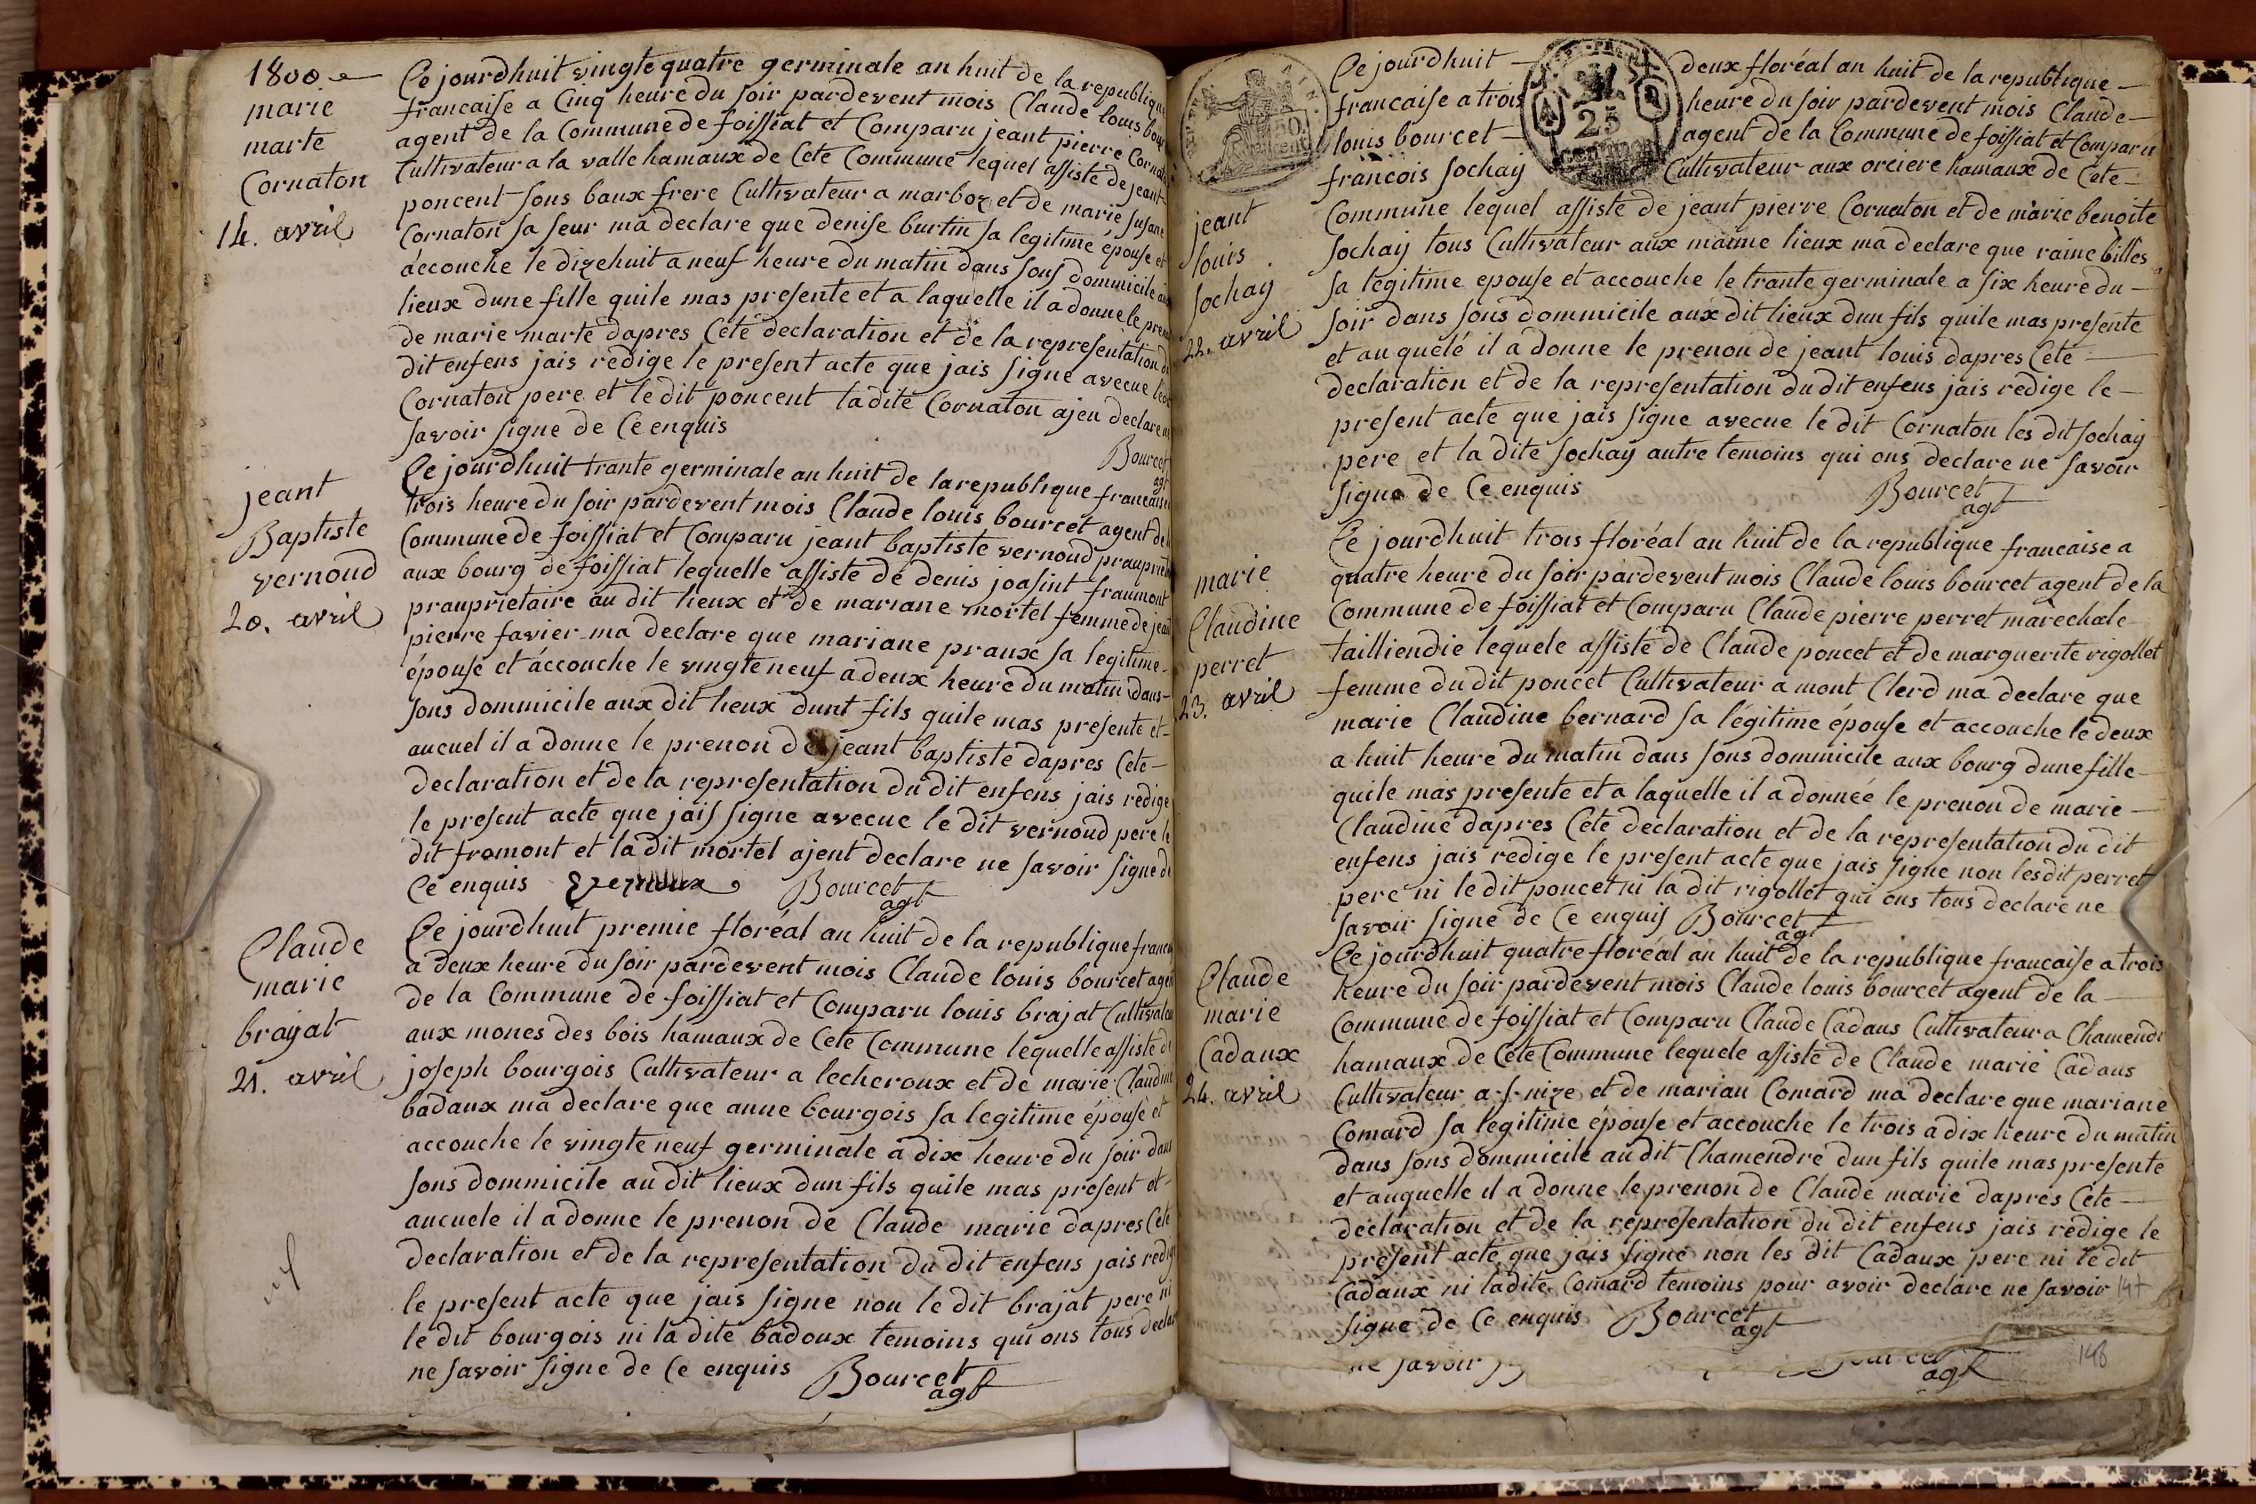 1800
marie
marte
Cornaton
14. avril
Ce jourdhuit vingte quatre germinale an huit de la republique
francaise a Cinq heure du soir pardevent mois Claude louis bour
agent de la Commune de foissiat et Comparu jeant pierre Cornat
Cultivateur a la valle hamaux de Cete Commune lequel assiste de jeant
poncent sons baux frere Cultivateur a marboz et de marie susane
Cornaton sa seur ma declare que denise burtin sa legitime épouse et
accouche le dizehuit a neuf heure du matin dans sons dommicile au
lieux dune fille quile mas presente et a laquelle il a donne le preno
de marie marte dapres Cete declaration et de la representation du
dit enfens jais redige le present acte que jais signe avecue ledit
Cornaton pere et le dit poncent ladite Cornaton ajen declare ne
savoir signe de Ce enquis
Bourcet
agt
jeant
Baptiste
vernoud
20. avril
Ce jourdhuit trante germinale an huit de la republique francaise
trois heure du soir pardevent mois Claude louis bourcet agent de
Commune de foissiat et Comparu jeant baptiste vernoud prauprie
aux bourg de foissiat lequelle assiste de denis joasint fraumont
prauprietaire au dit lieux et de mariane mortel femme de jeant
pierre favier ma declare que mariane praux sa legitime
épouse et áccouche le vingte neuf a deux heure du matin dans
sons dommicile aux dit lieux dunt fils quile mas presente et
aucuel il a donne le prenon de jeant baptiste dapres Cete
declaration et de la representation du dit enfens jais redige
le present acte que jais signe avecue le dit vernoud pere le
dit fromont et la dit mortel ajent declare ne savoir signe de
Ce enquis
Bourcet
agt
Claude
marie
brajat
21. avril
Ce jourdhuit premie floréal an huit de la republique francai
a deux heure du soir pardevent mois Claude louis bourcet agen
de la Commune de foissiat et Comparu louis brajat Cultivateu
aux mones des bois hamaux de Cete Commune lequelle assiste de
joseph bourgois Cultivateur a lecheroux et de marie Claudine
badaux ma declare que anne bourgois sa legitime épouse et
accouche le vingte neuf germinale a dix heure du soir dans
sons dommicile au dit lieux dun fils quile mas present et
aucuele il a donne le prenon de Claude marie dapres Cete
declaration et de la representation du dit enfens jais redig
le present acte que jais signe non le dit brajat pere ni
le dit bourgois ni la dite badoux temoins qui ons tous declar
ne savoir signe de Ce enquis
Bourcet
agt
jeant
louis
sochay
22. avril
Ce jourdhuit deux floréal an huit de la republique
francaise a trois heure du soir pardevent mois Claude
louis bourcet agent de la Commune de foissiat et Comparu
francois sochay Cultivateur aux orciere hamaux de Cete
25
centimes
50
Commune lequel assiste de jeant pierre Cornaton et de marie benoite
sochay tous Cultivateur aux maime lieux ma declare que raine billes
sa legitime epouse et accouche le trante germinale a six heure du
soir dans sons dommicile aux dit lieux dun fils quile mas presente
et auquelé il a donne le prenon de jeant louis dapres Cete
declaration et de la representation du dit enfens jais redige le
present acte que jais signe avecue le dit Cornaton les dit sochay
pere et la dite sochay autre temoins qui ons declare ne savoir
signe de Ce enquis
Bourcet
agt
marie
Claudine
perret
23. avril
Ce jourdhuit trois floréal an huit de la republique francaise a
quatre heure du soir pardevent mois Claude louis bourcet agent de la
Commune de foissiat et Comparu Claude pierre perret marechale
tailliendie lequele assiste de Claude poncet et de marguerite rigollet
femme du dit poncet Cultivateur a mont Clerd ma declare que
marie Claudine bernard sa légitime épouse et accouche le deux
a huit heure du matin dans sons dommicile aux bourg dune fille
quile mas presente et a laquelle il a donnée le prenon de marie
Claudine dapres Cete declaration et de la representation du dit
enfens jais redige le present acte que jais signe non lesdit perret
pere ni le dit poncet ni la dit rigollet qui ons tous declare ne
savoir signe de Ce enquis
Bourcet
agt
Claude
marie
Cadaux
24. avril
Ce jourdhuit quatre floréal an huit de la republique francaise a trois
heure du soir pardevent mois Claude louis bourcet agent de la
Commune de foissiat et Comparu Claude Cadaus Cultivateur a Chamendre
hamaux de Cete Commune lequele assiste de Claude marie Cadaus
Cultivateur a et de marian Comard ma declare que mariane
Comard sa legitime épouse et accouche le trois a dix heure du matin
dans sons dommicile au dit Chamendre dun fils quile mas presente
et auquelle il a donne le prenon de Claude marie dapres Cete
declaration et de la representation du dit enfens jais redige le
present acte que jais signe non les dit Cadaux pere ni le dit
Cadaux ni ladite Comard temoins pour avoir declare ne savoir 147
signe de Ce enquis
Bourcet
agt
ne savoir
agt
148